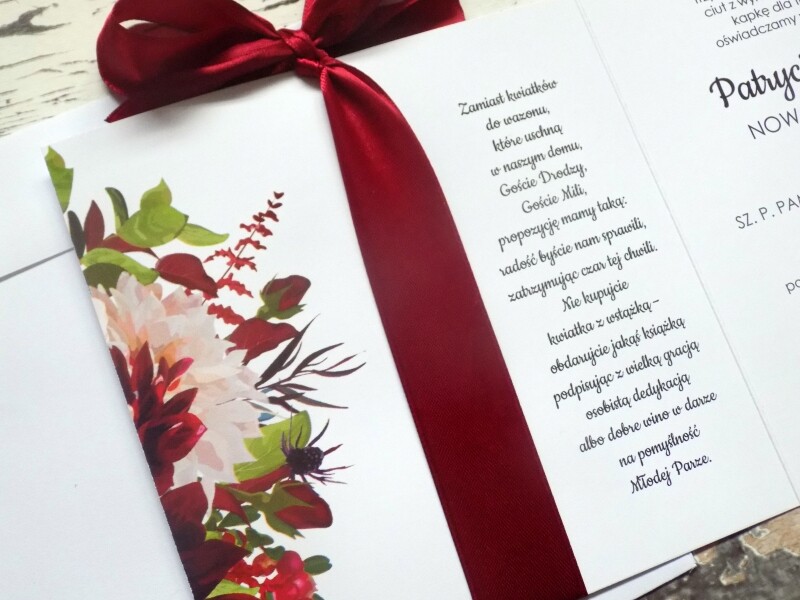 Zamiast kwiatków
do wazonu,
które uschną
w naszym domu,
Goście Drodzy,
Goście Mili,
propozycję mamy taką:
radość byście nam sprawili,
zatrzymując czar tej chwili.
Nie kupujcie
kwiatka z wstążką –
obdarujcie jakąś książką
podpisując z wielką gracją
osobistą dedykacją
albo dobre wino w darze
na pomyślność
Młodej Parze.
ciut z
kapkę dla
oświadczamy
Patryc
NOW
SZ. P. PA